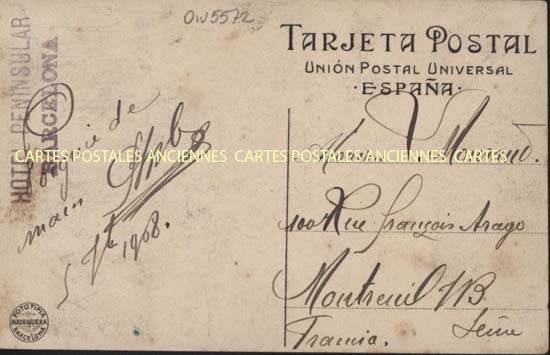 OW5572
HOTEL PENINSULAR
BARCELONA
TARJETA POSTAL
UNIÓN POSTAL UNIVERSAL
·ESPAÑA·
de
main
1908.
CARTES POSTALES ANCIENNES CARTES POSTALES ANCIENNES
100 Rue François Arago
Montreuil S/B
Seine
Francia.
FOTOTIPIA
MADRIGUERA
BARCELONA